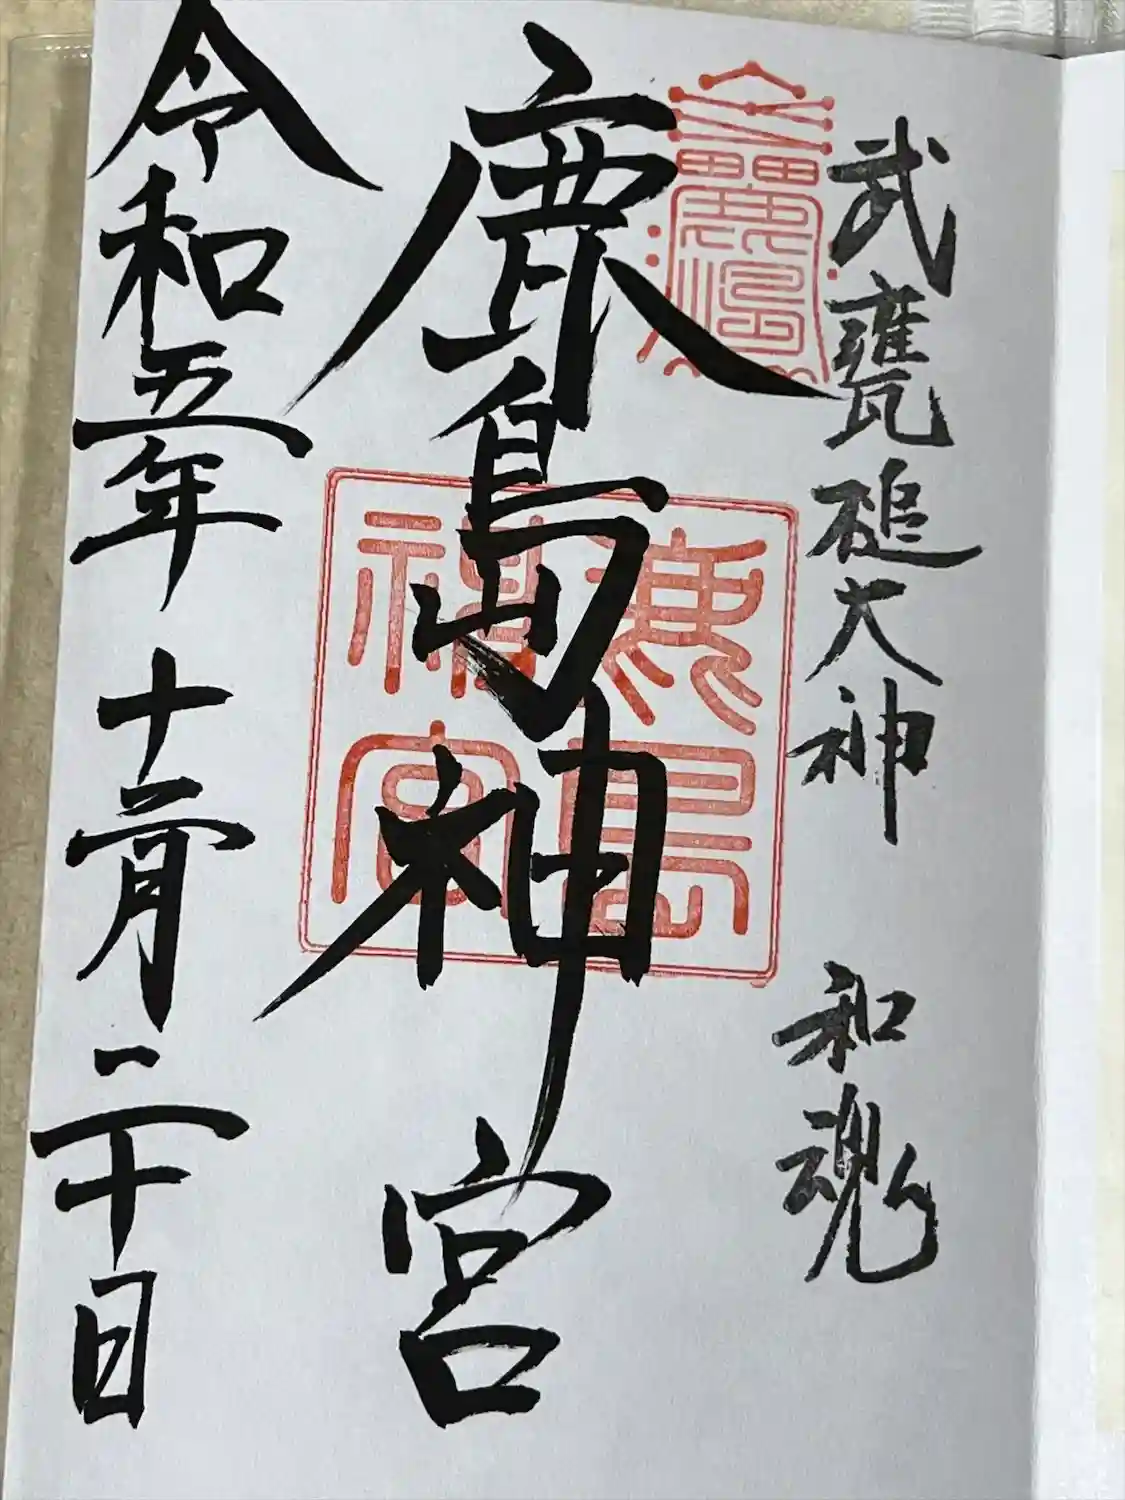 武甕槌大神 和魂
鹿島神宮
鹿島
神宮
令和五年 十二月 二十日